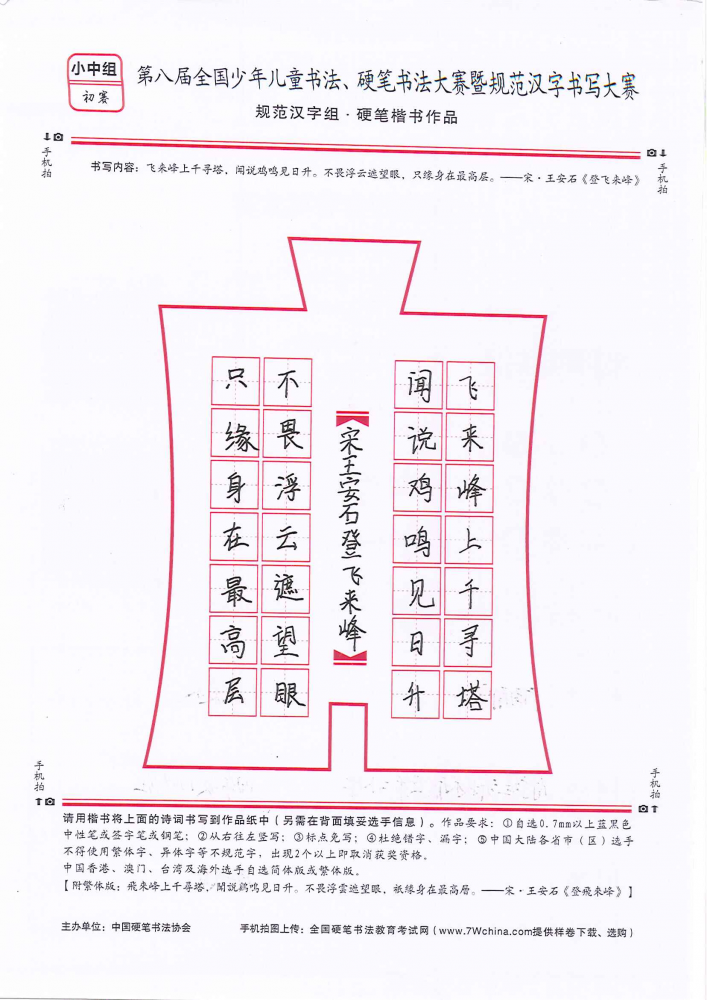 小中组
初赛
第八届全国少年儿童书法、硬笔书法大赛暨规范汉字书写大赛
规范汉字组·硬笔楷书作品
手机拍
手机拍
书写内容：飞来峰上千寻塔，闻说鸡鸣见日升。不畏浮云遮望眼，只缘身在最高层。——宋·王安石《登飞来峰》
飞来峰上千寻塔
闻说鸡鸣见日升
宋王安石登飞来峰
不畏浮云遮望眼
只缘身在最高层
手机拍
手机拍
请用楷书将上面的诗词书写到作品纸中（另需在背面填妥选手信息）。作品要求：①自选0.7mm以上蓝黑色
中性笔或签字笔或钢笔；②从右往左竖写；③标点免写；④杜绝错字、漏字；⑤中国大陆各省市（区）选手
不得使用繁体字、异体字等不规范字，出现2个以上即取消获奖资格。
中国香港、澳门、台湾及海外选手自选简体版或繁体版。
【附繁体版：飛来峰上千尋塔，聞說鷄鳴見日升。不畏浮雲遮望眼，祇缘身在最高層。——宋·王安石《登飛来峰》】
主办单位：中国硬笔书法协会 手机拍图上传：全国硬笔书法教育考试网（www.7Wchina.com提供样卷下载、选购）